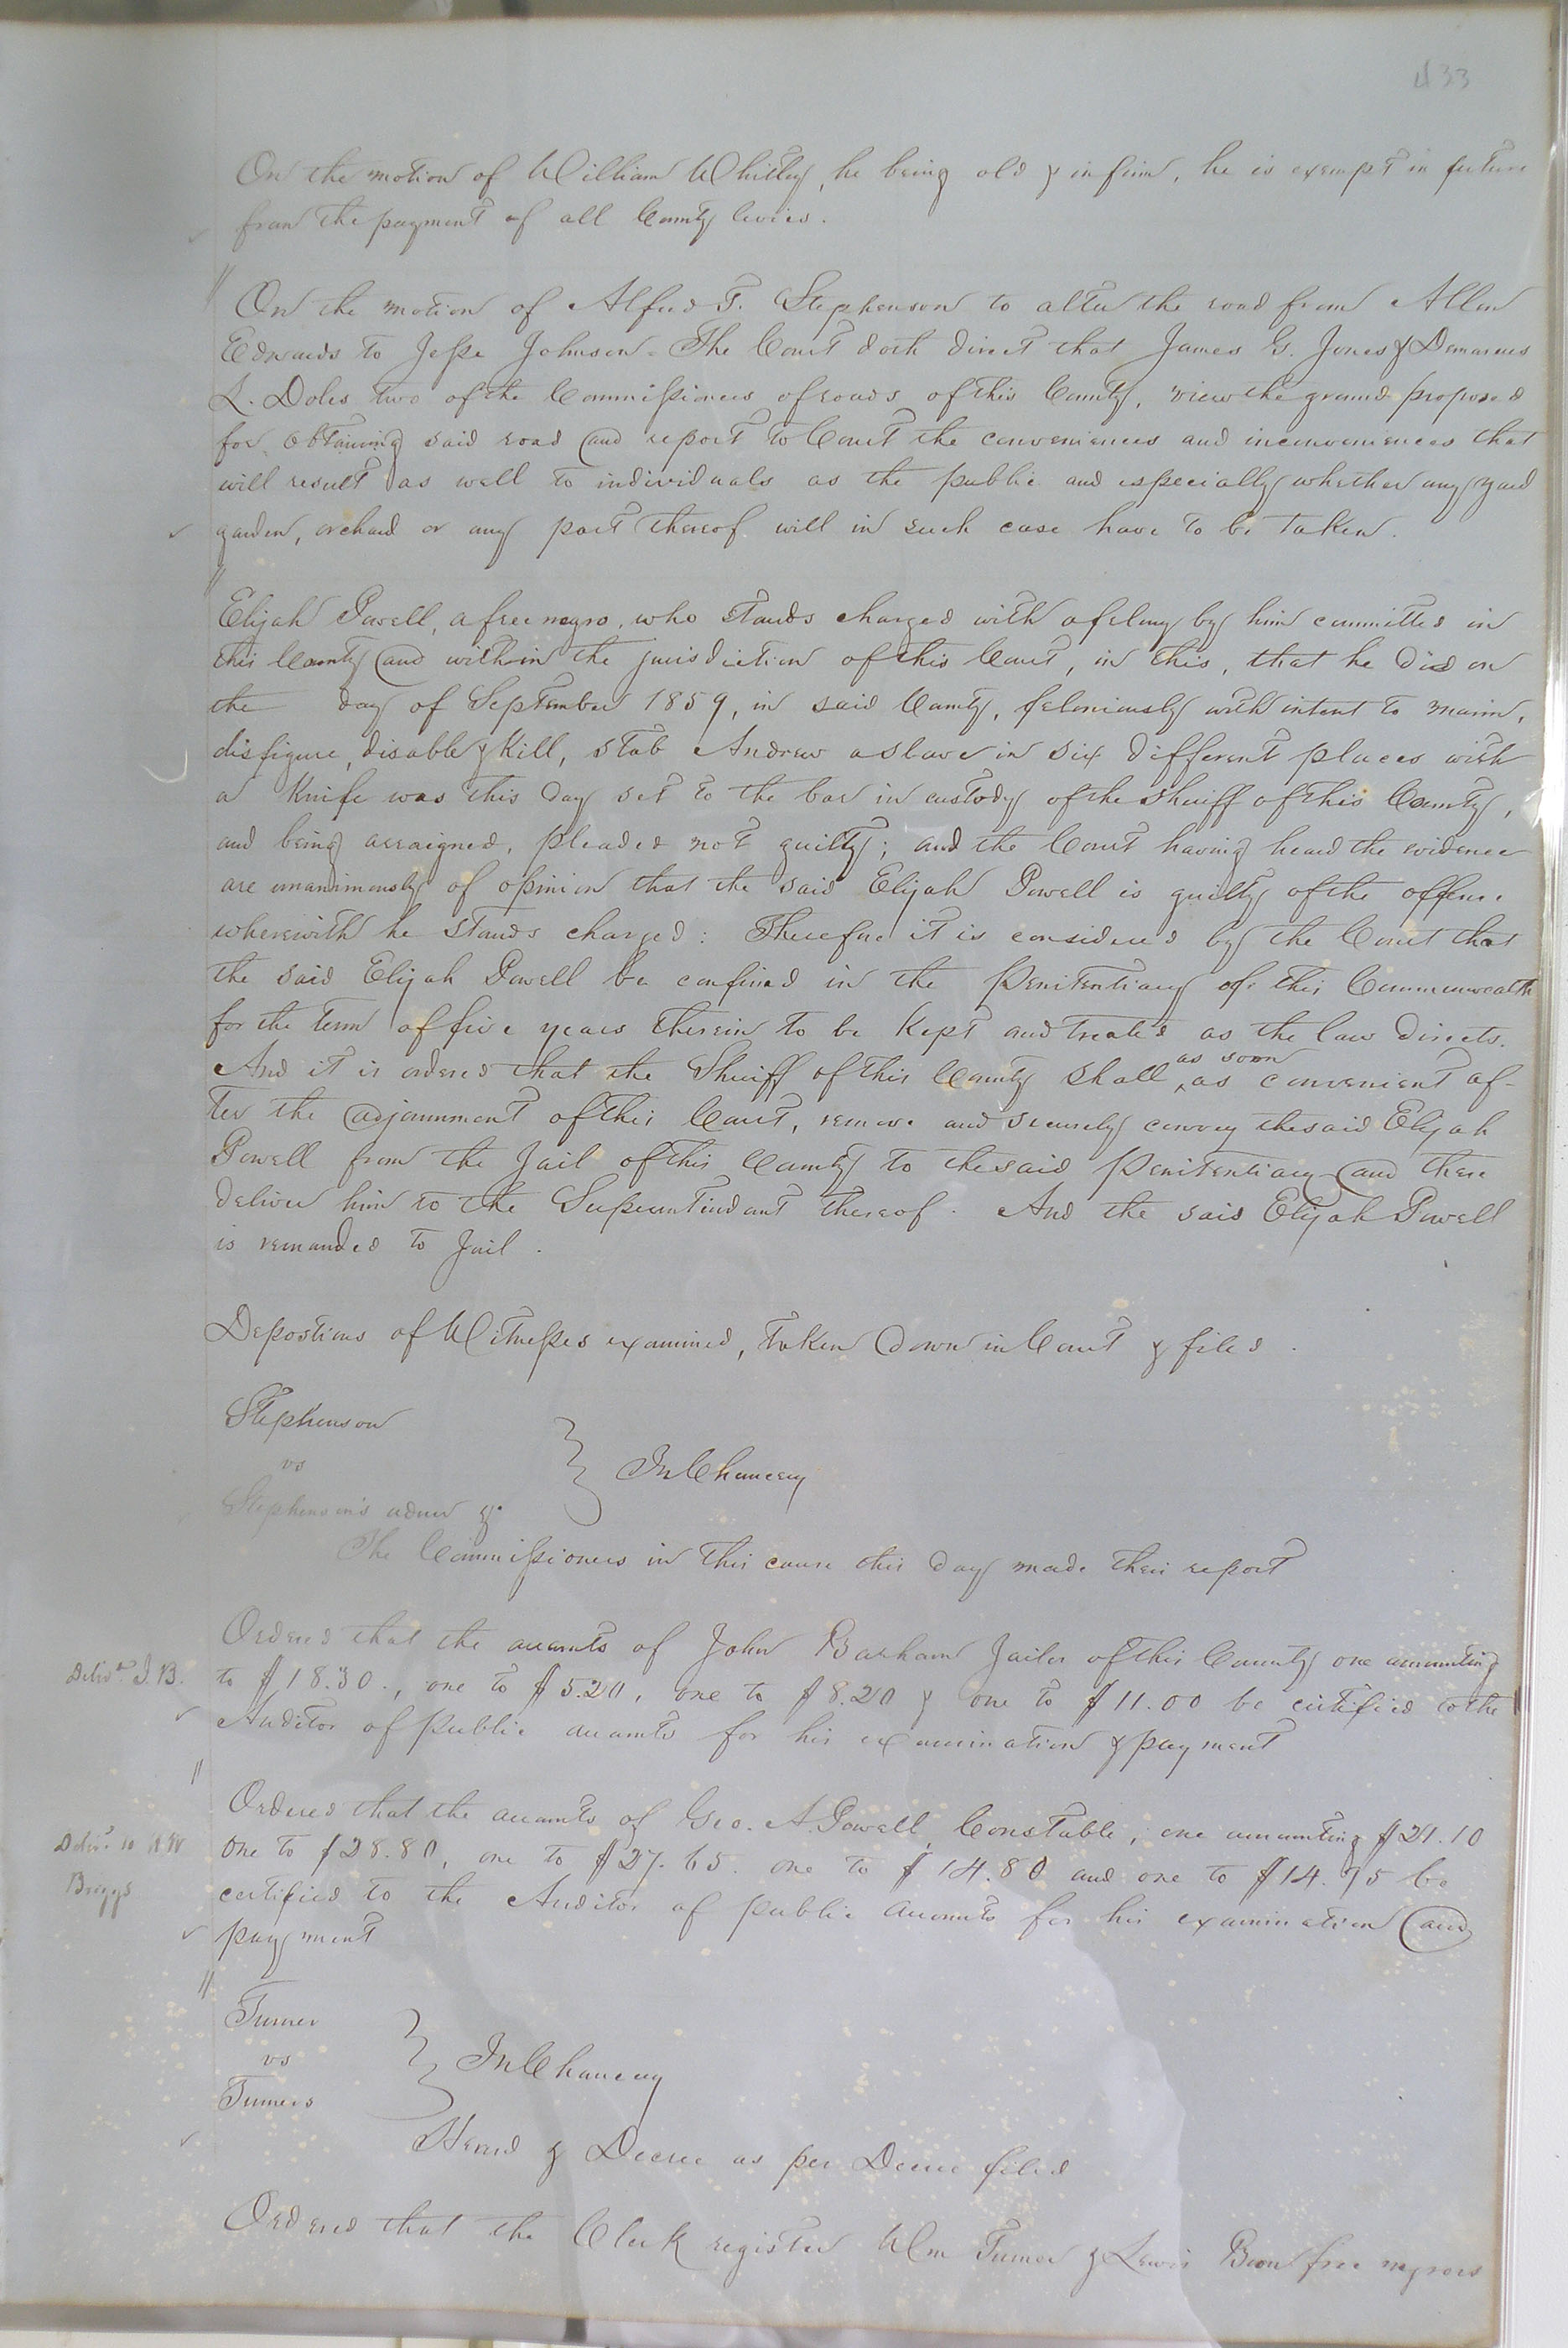 433
On the motion of William Whitley, he being old & infirm, he is exempt in future
from the payment of all County levies.
On the motion of Alfred T. Stephenson to alter the road from Allen
Edwards to Jesse Johnson. The Court doth direct that James G. Jones & Demarcus
L. Doles two of the Commissioners of roads of this County, view the ground proposed
for obtaining said road and report to Court the conveniences and inconveniences that
will result as well to individuals as the public and especially whether any yard
garden, orchard or any part thereof will in such case have to be taken.
Elijah Powell, a free negro, who stands charged with a felony by him committed in
this County and within the jurisdiction of this Court, in this, that he did on
the day of September 1859, in said County, feloniously with intent to maim,
disfigure, disable & Kill, stab Andrew a slave in six different places with
a Knife was this day set to the bar in custody of the Sheriff of this County,
and being arraigned, pleaded not guilty; and the Court having heard the evidence
are unanimously of opinion that the said Elijah Powell is guilty of the offense
wherewith he stands charged: Therefore it is considered by the Court that
the said Elijah Powell be confined in the Penitentiary of this Commonwealth
for the term of five years therein to be Kept and treated as the law directs.
And it is ordered that the Sheriff of this County shall as soon as convenient af-
ter the adjournment of this Court, remove and securely convey the said Elijah
Powell from the Jail of this County to the said Penitentiary and there
deliver him to the Superintendant thereof. And the said Elijah Powell
is remanded to Jail.
Depostions of Witnesses examined, taken down in Court & filed.
Stephenson
vs
Stephenson's admr &c
In Chancery
The Commissioners in this cause this day made their report
Ordered that the accounts of John Barham Jailer of this County one amounting
Delivd J. B. to $18.30., one to $5.20, one to $8.20 & one to $11.00 be certified to the
Auditor of public accounts for his examination & payment
Ordered that the accounts of Geo. A. Powell, Constable, one amounting $21.10
Delivd to
one to $28.80, one to $27.65. one to $14.80 and one to $14.75 be
Briggs
certified to the Auditor of public accounts for his examination and
payment
Turner
vs
Turners
In Chancery
Heard & Decree as per Decree filed
Ordered that the Clerk register Wm Turner & Lewis free negroes